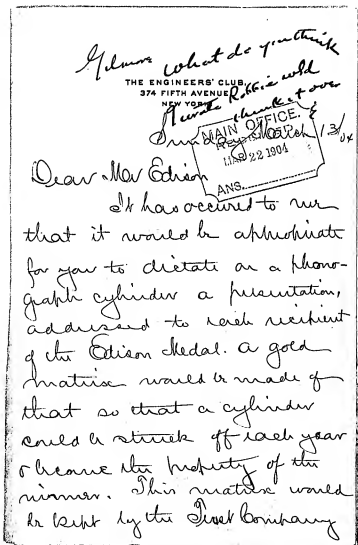 Gilmore what do you think
THE ENGINEERS' CLUB,
374 FIFTH AVENUE
NEW YORK
think it over
MAIN OFFICE.
MAR 22 1904
ANS.
Sunday March 13/04
Dear Mr Edison
It has occured to me
that it would be appropriate
for you to dictate on a phono-
graph cylinder a presentation,
addressed to each recipient
of the Edison Medal. A gold
matrix would be made of
that so that a cylinder
could be struck off each year
& become the property of the
winner. This matrix would
be kept by the Trust Company